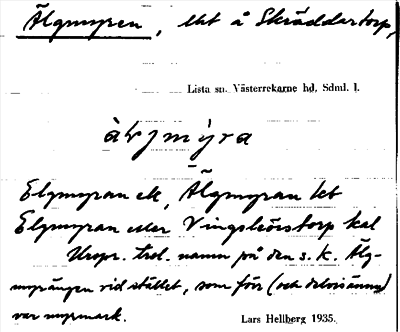 Älgmyren, lht å Skräddartorp,
Lista sn. Västerrekarne hd. Sdml. l.
àlγmỳra
Elgmyran ek, Älgmyran lht
Elgmyran eller Vingsleörstorp kal
Urspr. trol. namn på den s. k. Älg-
myrängen vid stället, som förr (och delvis ännu)
var myrmark.
Lars Hellberg 1935.